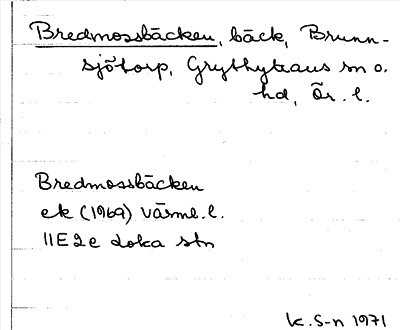 Bredmossbäcken, bäck, Brunn-
sjötorp, Grythytteans sn o.
hd, Ör. l.
Bredmossbäcken
ek (1969) Värml. l.
11E 2e doka stn
K. S-n 1971